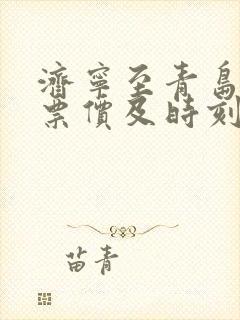 濟寧至青島
票價及時刻
苗青